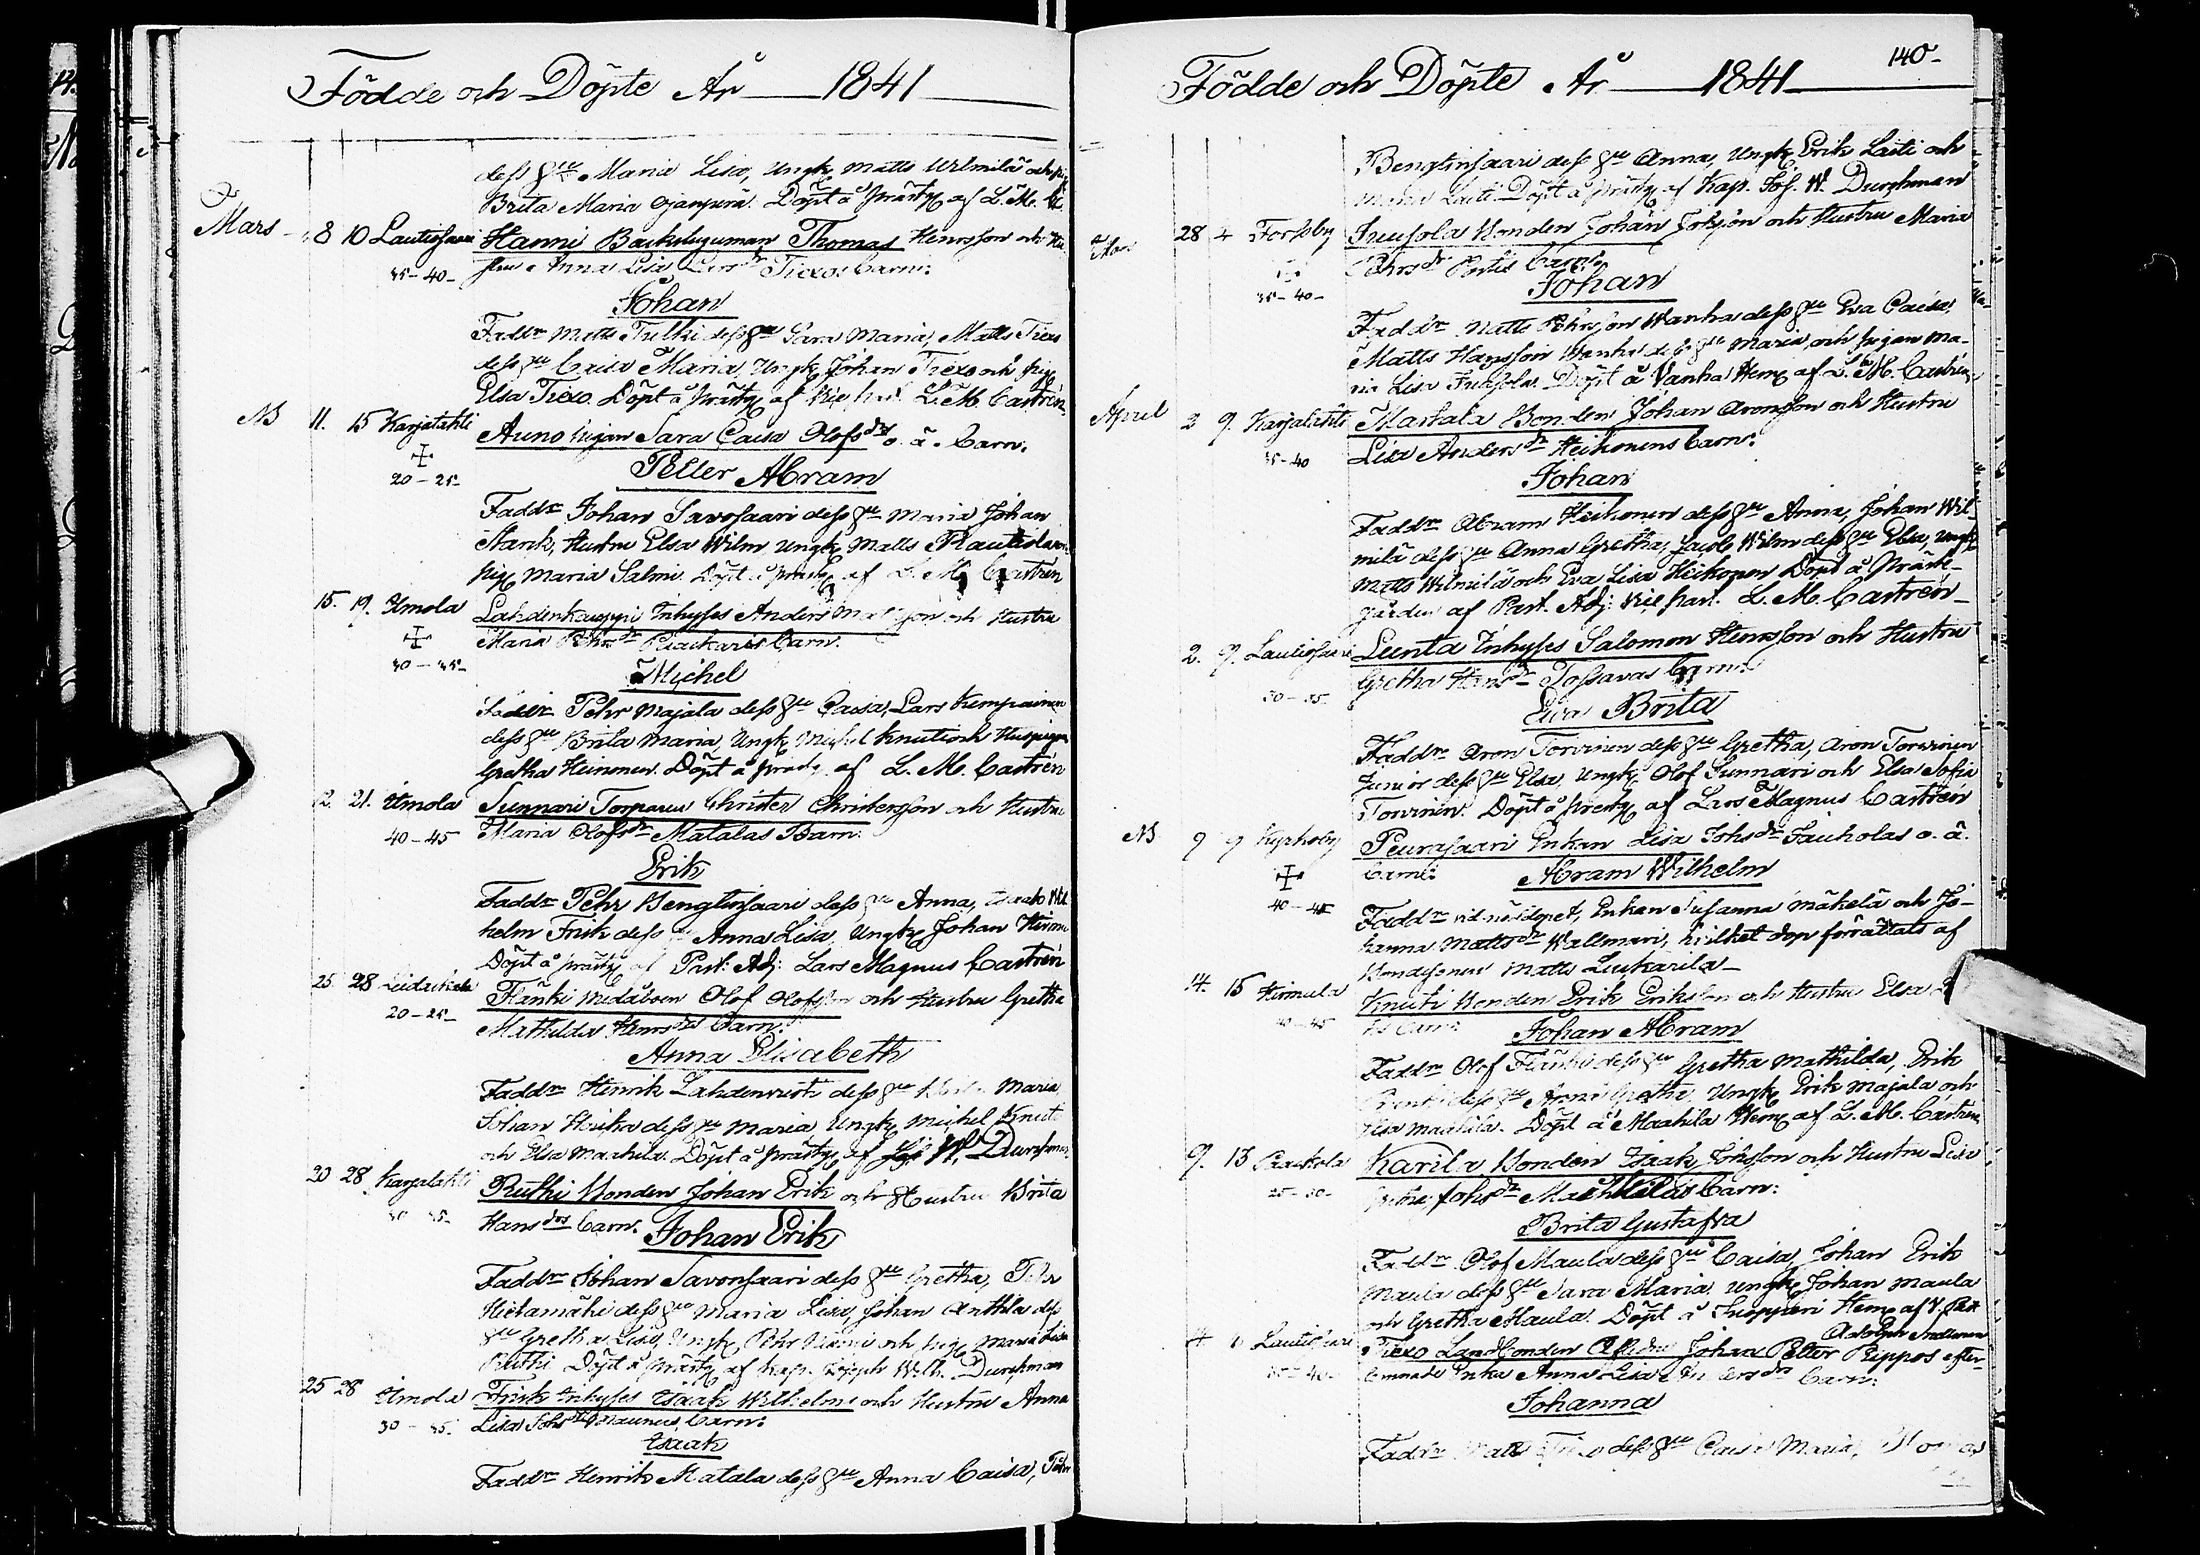 Födde och Döpte År 1841
dess Hu Maria Lisa, Ungk. Matts Wilmilä och pig
Brita Maria Ojanperä. Döpt å Prästg. af L. M. C.
Mars 8 10 Lautiosaari Hanni Backstuguman Thomas Henrsson och Hu
35-40 stru Anna Lisa Larsdr Tiexos barn:
Johan
Faddr Matts Tulki dess Hu Sara Maria, Matts Tiexo
dess Hu Caisa Maria, Ungk. Johan Tiexo och pig.
Elsa Tiexo. Döpt å Prästg. af L. M. Castrén
NB 11. 15 Karjalahti Auno pigan Sara Caisa Olofsdrs o. ä. barn.
20-25 Petter Abram
Faddr Johan Savosaari dess Hu Maria, Johan
Stark, Hustru Elsa Wilm, Ungk. Matts
pig. Maria Salmi. Döpt å Prästg. af L. M. Castrén
15. 19. Ilmola Lahdenkauppi Inhyses Anders Mattsson och Hustru
Maria Pehrsdr barn.
30-35 Michel
Faddr Pehr Majala dess Hu Caisa, Lars Kemppainen
dess Hu Brita Maria, Ungk. Michel Knuti och
Gretha Heinonen. Döpt å Prästg. af L. M. Castrén
12. 21. Ilmola Sunnari Torparen Christer Christersson och Hustru
40-45 Maria Olofsdr Matalas Barn.
Erik
Faddr Pehr Bengtinsaari dess Hu Anna, Isaak Wil
helm Frisk dess Hu Anna Lisa, Ungk. Johan
Döpt å Prästg. af Past. Adj. Lars Magnus Castrén
25. 28 Flänki Olof Olofsson och Hustru Gretha
20-25 Mathilda Henrsdrs barn:
Anna Elisabeth
Faddr Henrik dess Hu Maria
Johan dess Hu Maria Ungk. Michel Knuti
och Elsa Maahila. Döpt å Prästg. af W. Durchman
20 28 Karjalahti Ruthi Bonden Johan Erik och Hustru Brita
Hansdrs barn: Johan Erik
Faddr Johan Savonsaari dess Hu Gretha, Pehr
Hietamäki dess Hu Maria Lisa, Johan Anttila dess
Hu Gretha Lisa, Ungk. Pehr och pig. Maria Lisa
Ruthi Döpt å Prästg. af Kapn. Joseph Wilh. Durchman
25 28 Ilmola Frisk Inhyses Isaak Wilhelm och Hustru Anna
30-35 Lisa Johsdr barn:
Isaak
Faddr Henrik Matala dess Hu Anna Caisa, Pehr
140
Födde och Döpte År 1841
Bengtinsaari dess Hu Anna, Ungk. Erik Laiti och
Maria Laiti. Döpt å Prästg. af Kapn. Jos. W. Durchman
Mars 28 4 Forssby Inusola Bonden Johan Johsson och Hustru Maria
Pehrsdr barn:
35-40 Johan
Faddr Matts Pehrsson Wanha dess Hu Eva Caisa,
Matts Hansson Wanha dess Hu Maria, och pigan Ma-
ria Lisa Inusola. Döpt å Vanha Hem. af L. M. Castrén
April 2 9. Karjalahti Martala Bonden Johan Aronsson och Hustru
35-40 Lisa Andersdr Heikonens barn:
Johan
Faddr Abram Heikonen dess Hu Anna, Johan Wil-
milä dess Hu Anna Gretha, Jacob Wilm dess Hu Elsa, Ungk.
Matts Wilmilä och Eva Lisa Heikonen Döpt å Präst-
gården af Past. Adj. L. M. Castrén
2. 9. Lautiosaari Leenta Inhyses Salomon Henrsson och Hustru
30-35 Gretha Hansdr Tossavas barn:
Eva Brita
Faddr Aron Torvinen dess Hu Gretha, Aron Torvinen
Junior dess Hu Elsa, Ungk. Olof Sunnari och Elsa Sofia
Torvinen. Döpt å Prästg. af Lars Magnus Castrén
NB 9 9 Kyrkoby Peurasaari Enkan Lisa Johsdr Jauholas o. ä.
barn: Abram Wilhelm
40-45 Faddr vid nöddopet, Enkan Susanna Mäkelä och Jo-
hanna Mattsdr Wallmari, hvilket dop förrättats af
Bondesonen Matts Luukarila
14. 15 Knuti Bonden Erik Eriksson och Hustru Elsa
40-45 barn: Johan Abram
Faddr Olof Flänki dess Hu Gretha Mathilda, Erik
dess Hu Anna Gretha, Ungk. Erik Majala och
Lisa Maahila. Döpt å Maahila Hem. af L. M. Castrén
9. 13 Paakkola Karila Bonden Isaak Johsson och Hustru Lisa
25-30 Gretha Johsdr barn:
Brita Gustafva
Faddr Olof Maula dess Hu Caisa, Johan Erik
Maula dess Hu Sara Maria, Ungk. Johan Maula
och Gretha Maula. Döpt å Hem. af
Adolph
4. Lautiosaari Tiexo Landbonden Aflidne Johan Petter Pippos efter-
35-40 lemnade Enka Anna Lisa Andersdrs barn:
Johanna
Faddr Matts Tiexo dess Hu Caisa Maria, Thomas